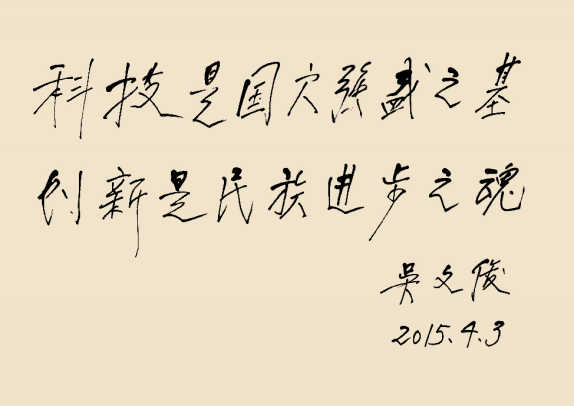 科技是国家强盛之基
创新是民族进步之魂
吴文俊
2015.4.3